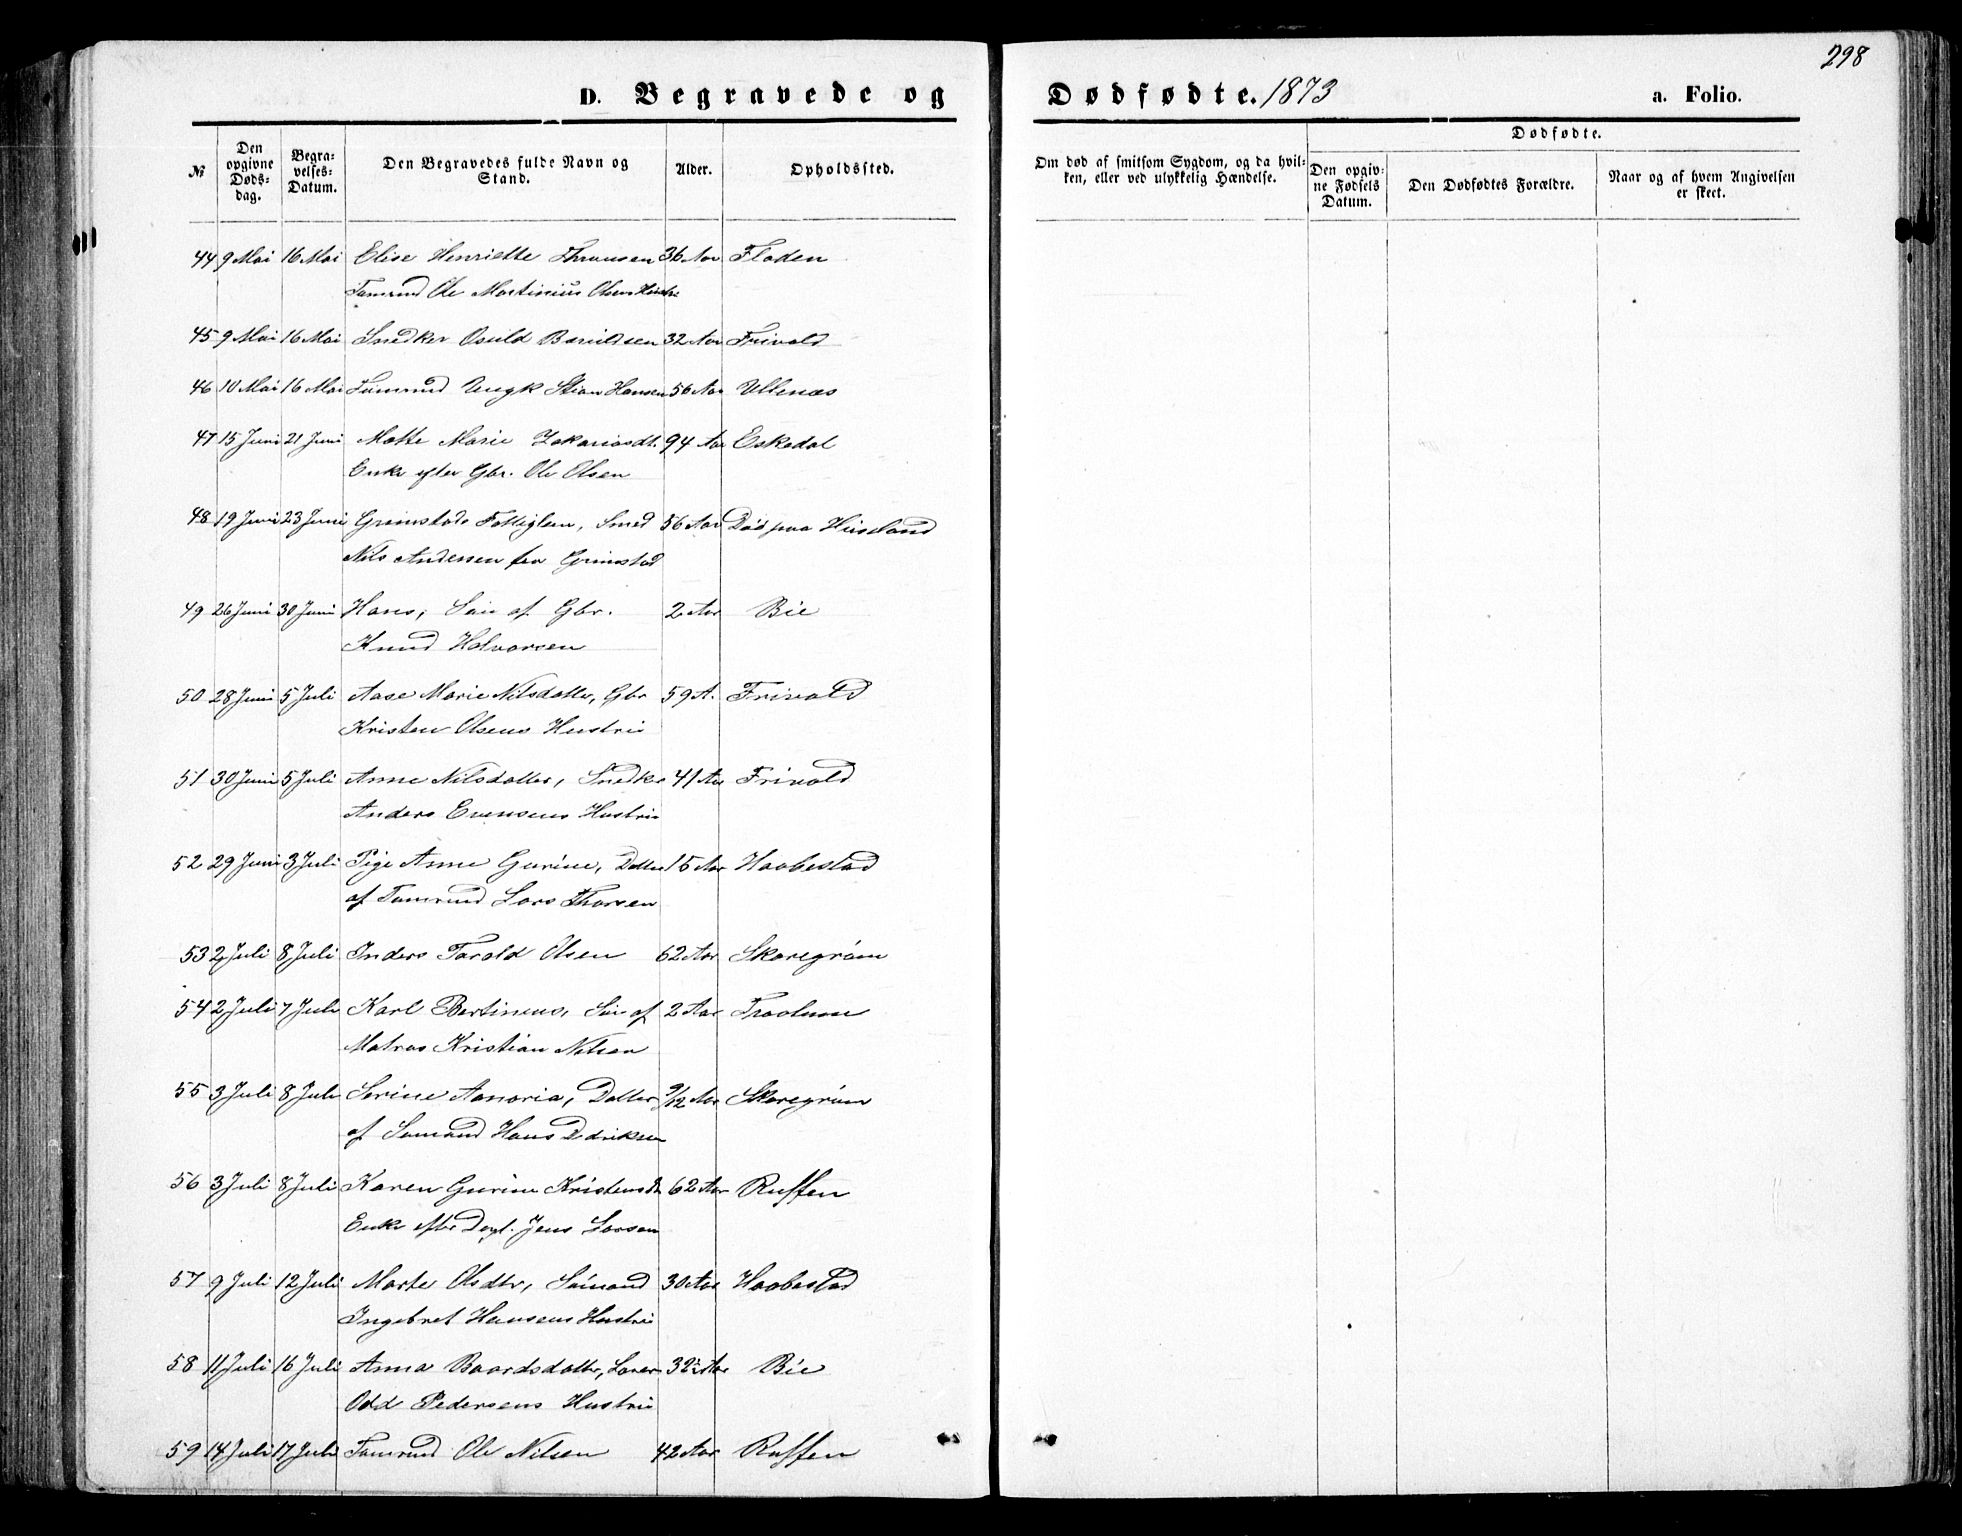 298
D. Begravede og Dødfødte. 1873
a. Folio.
№
Den opgivne Døds-dag.
Begra-velses-Datum.
Den Begravedes fulde Navn og Stand.
Alder.
Opholdssted.
Om død af smitsom Sygdom, og da hvil-ken, eller ved ulykkelig Hændelse.
Dødfødte.
Den opgiv-ne Fødsels Datum.
Den Dødfødtes Forældre.
Naar og af hvem Angivelsen er skeet.
44 9 Mai 16 Mai Elise Henriette 36 Aar Floden
Ole Martinius Olsens Hustru
45 9 Mai 16 Mai Snedker Osuld 32 Aar Frivold
46 10 Mai 16 Mai Hansen 56 Aar Ullenæs
47 15 Juni 21 Juni Marie Zakariasdt. 94 Aar Eskedal
Enke efter Gbr. Ole Olsen
48 19 Juni 23 Juni Grimstads Fattiglem, Smed 56 Aar Død paa
Nils Andersen fra Grimstad
49 26 Juni 30 Juni Hans, Søn af Gbr. 2 Aar Bie
Knud Halvorsen
50 28 Juni 5 Juli Aase Marie Nilsdatter, Gbr 59 A. Frivold
Kristen Olsens Hustru
51 30 Juni 5 Juli Anne Nilsdatter, Snedker 41 Aar Frivold
Anders Evensens Hustru
52 29 Juni 3 Juli Pige Anne Gurine, Datter 15 Aar Haabestad
af Tømrmd Lars Thorsen
53 2 Juli 8 Juli Inders Tarald Olsen 62 Aar Skaregrøm
54 2 Juli 7 Juli Karl Bertineus, Søn af 2 Aar
Matros Kristian Nilsen
55 3 Juli 8 Juli Serine Aanaria, Datter 9/12 Aar Skaregrøm
af Sømand Hans
56 3 Juli 8 Juli Karen Gurine 62 Aar Roffen
Enke efter Jens Larsen
57 9 Juli 12 Juli Marte Olsdtr, Sømand 30 Aar Haabestad
Ingebret Hansens Hustru
58 11 Juli 16 Juli Anna Baardsdatter, 32 Aar Bie
Odd Pedersens Hustru
59 14 Juli 17 Juli Tømrmd Ole Nilsen 42 Aar Roffen